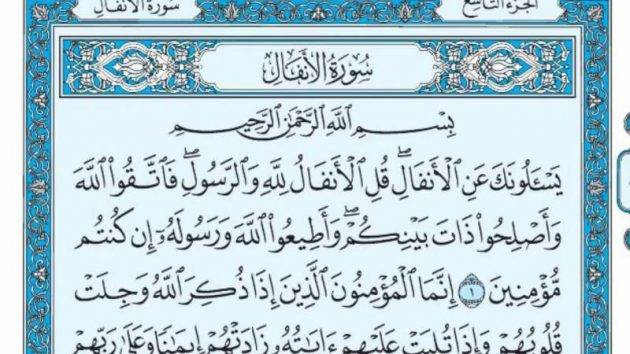 سورة الأنفال
الجزء التاسع
سُورَةُ الأَنفَالِ
بِسْمِ اللَّهِ الرَّحْمَٰنِ الرَّحِيمِ
يَسْـَٔلُونَكَ عَنِ ٱلْأَنفَالِۖ قُلِ ٱلْأَنفَالُ لِلَّهِ وَٱلرَّسُولِۖ فَٱتَّقُوا۟ ٱللَّهَ
وَأَصْلِحُوا۟ ذَاتَ بَيْنِكُمْۖ وَأَطِيعُوا۟ ٱللَّهَ وَرَسُولَهُۥٓ إِن كُنتُم
مُّؤْمِنِينَ ١ إِنَّمَا ٱلْمُؤْمِنُونَ ٱلَّذِينَ إِذَا ذُكِرَ ٱللَّهُ وَجِلَتْ
قُلُوبُهُمْ وَإِذَا تُلِيَتْ عَلَيْهِمْ ءَايَٰتُهُۥ زَادَتْهُمْ إِيمَٰنًا وَعَلَىٰ رَبِّهِمْ